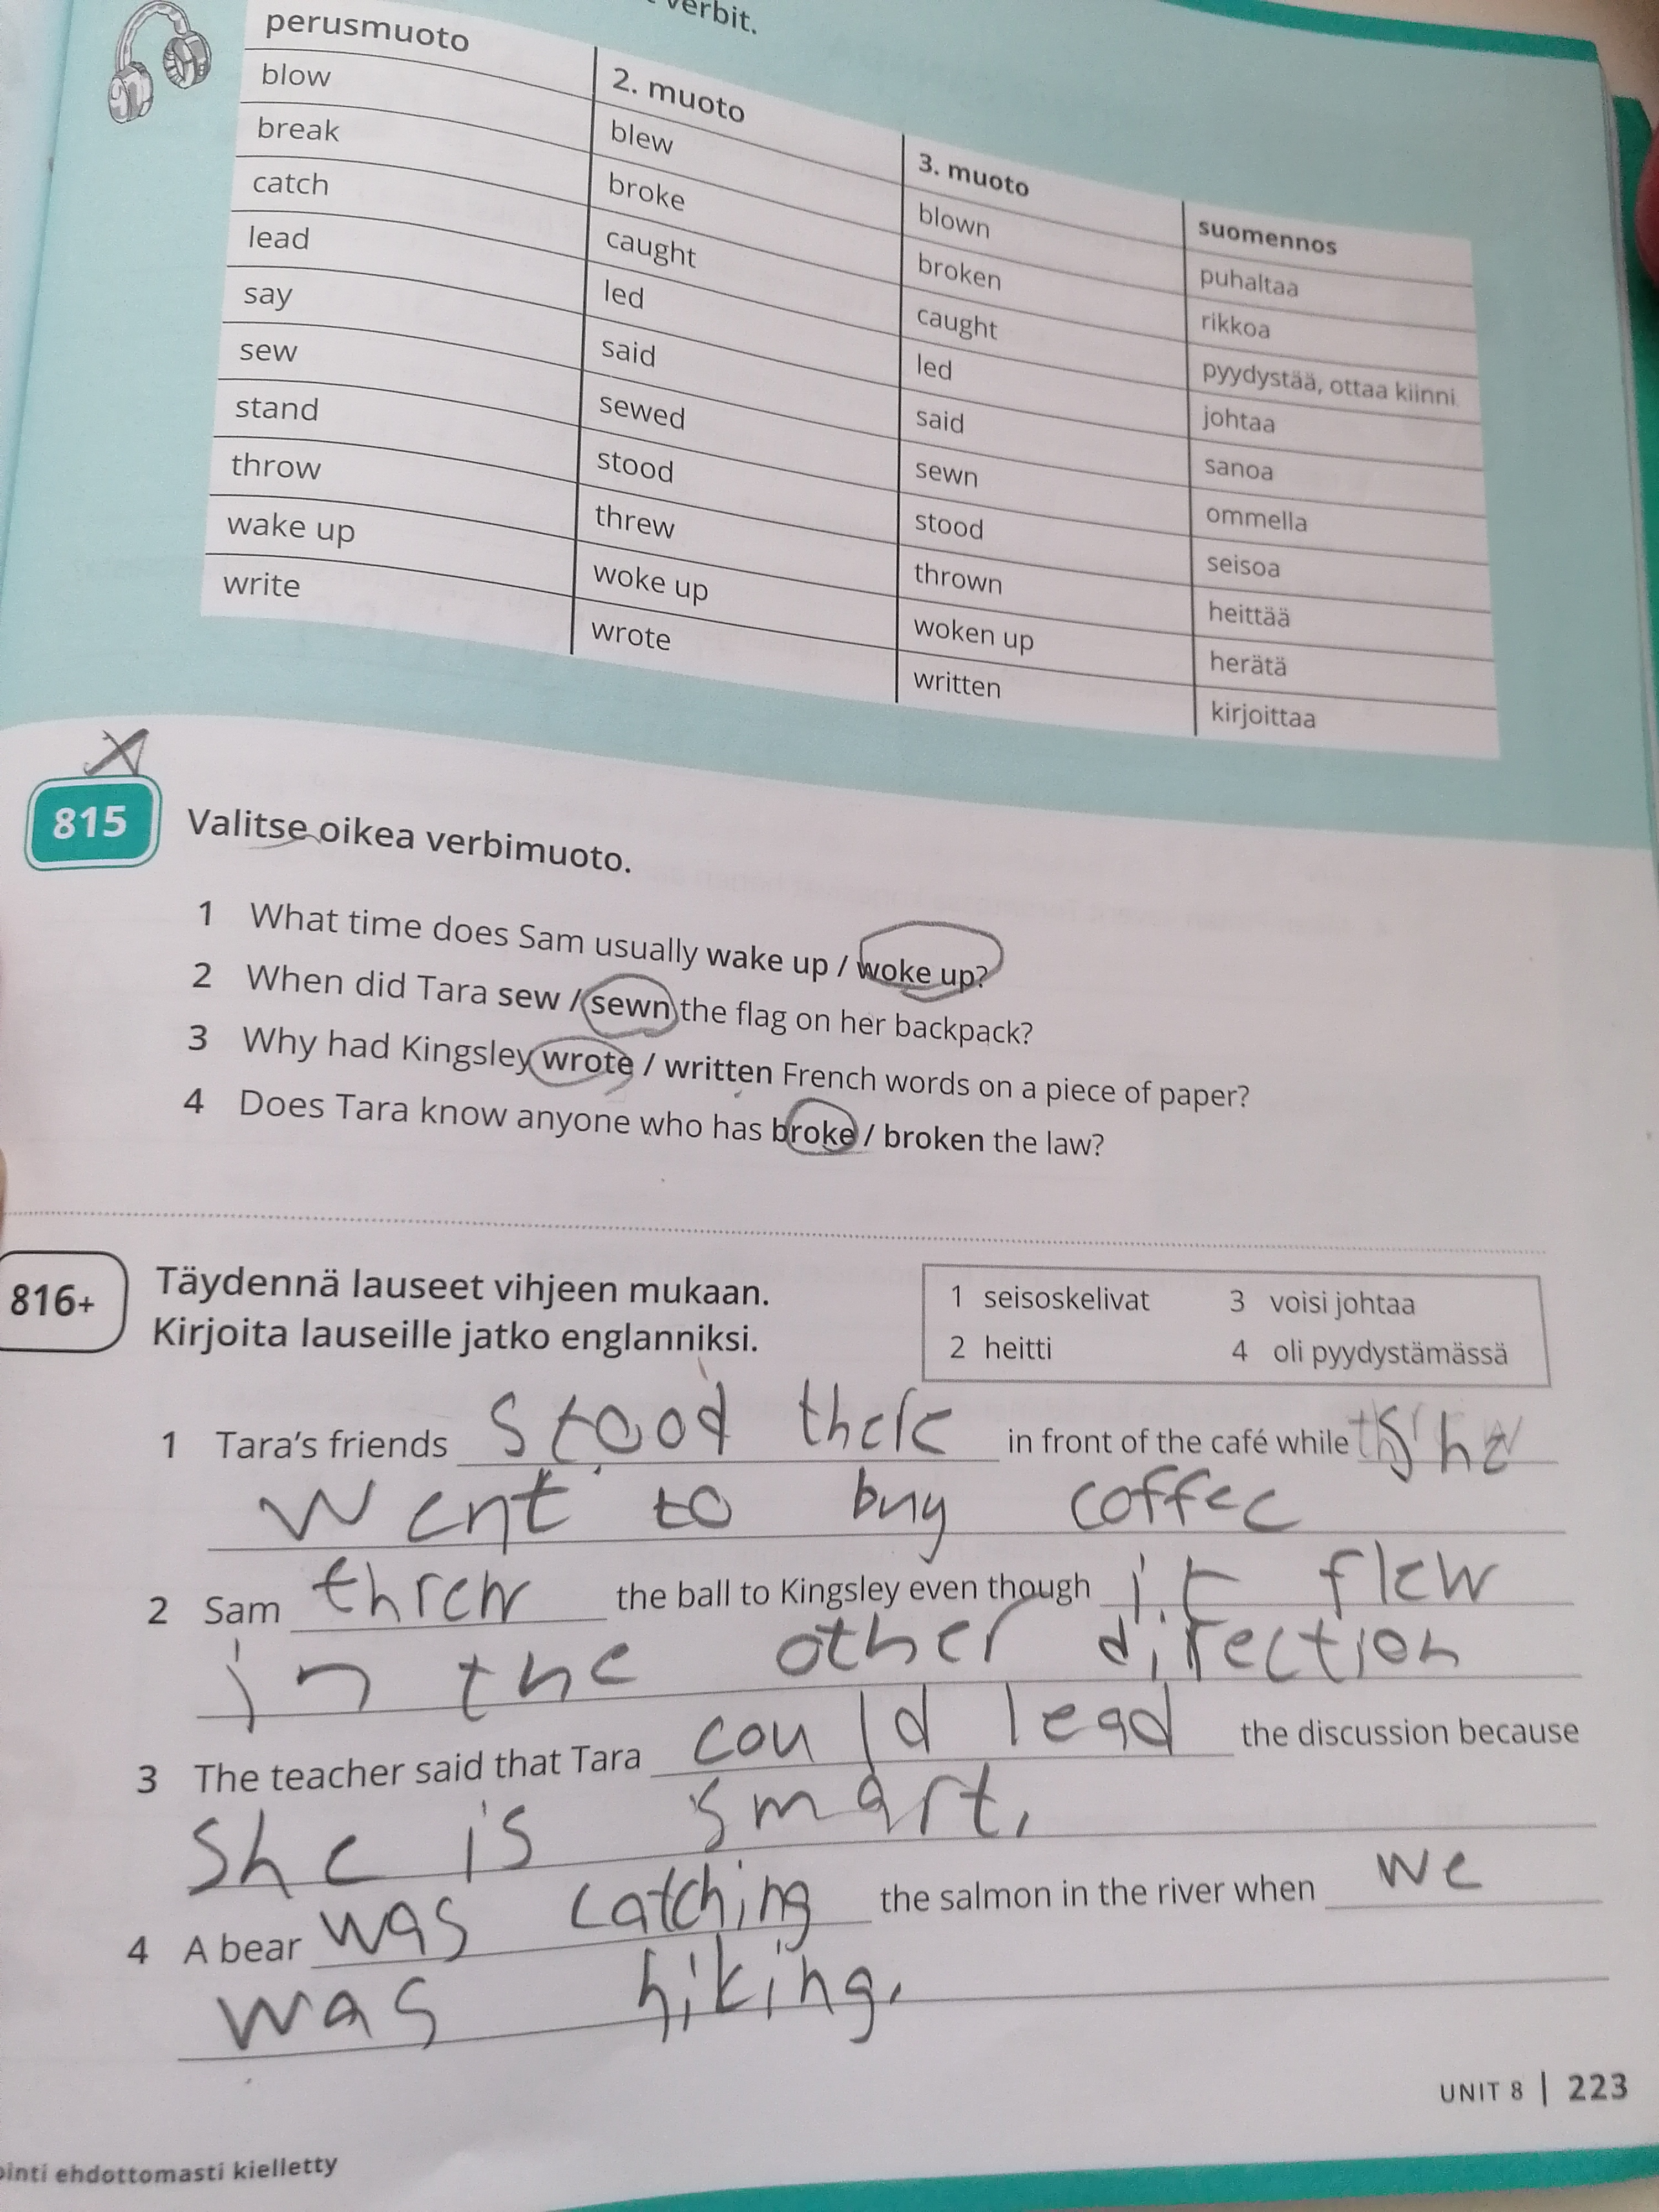 verbit.
perusmuoto 2. muoto 3. muoto suomennos
blow blew blown puhaltaa
break broke broken rikkoa
catch caught caught pyydystää, ottaa kiinni
lead led led johtaa
say said said sanoa
sew sewed sewn ommella
stand stood stood seisoa
throw threw thrown heittää
wake up woke up woken up herätä
write wrote written kirjoittaa
815 Valitse oikea verbimuoto.
1 What time does Sam usually wake up / woke up?
2 When did Tara sew / sewn the flag on her backpack?
3 Why had Kingsley wrote / written French words on a piece of paper?
4 Does Tara know anyone who has broke / broken the law?
816+ Täydennä lauseet vihjeen mukaan.
Kirjoita lauseille jatko englanniksi.
1 seisoskelivat 3 voisi johtaa
2 heitti 4 oli pyydystämässä
1 Tara's friends stood there in front of the café while she
went to buy coffee
2 Sam threw the ball to Kingsley even though it flew
in the other direction
3 The teacher said that Tara could lead the discussion because
she is smart.
4 A bear was catching the salmon in the river when we
was hiking.
UNIT 8 | 223
ehdottomasti kielletty